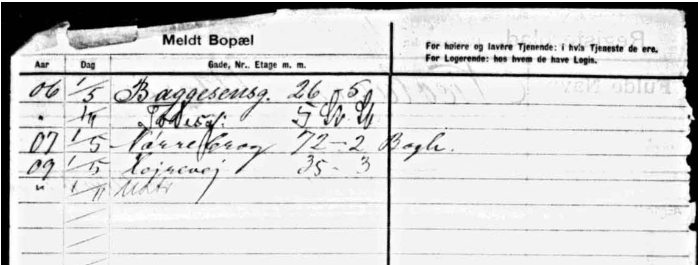 Meldt Bopæl
For høiere og lavere Tjenende: i hvis Tjeneste de ere.
For Logerende: hos hvem de have Logis.
Aar Dag Gade, Nr., Etage m. m.
06 1/5 Baggesensg. 26 5
" 1/11
07 1/5 Nørrebrog 72 - 2 Bagh.
09 1/5 Lejrevej 35 - 3
" 1/11